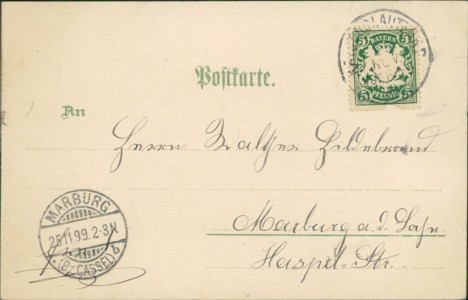 BAYERN
5 5
5 PFENNIG 5
Postkarte.
An
Herrn Walther Hildebrand
MARBURG
25 11 99. 2-3 N
* (Bz. CASSEL) b
Marburg a. d. Lahn
Haspel-Str.